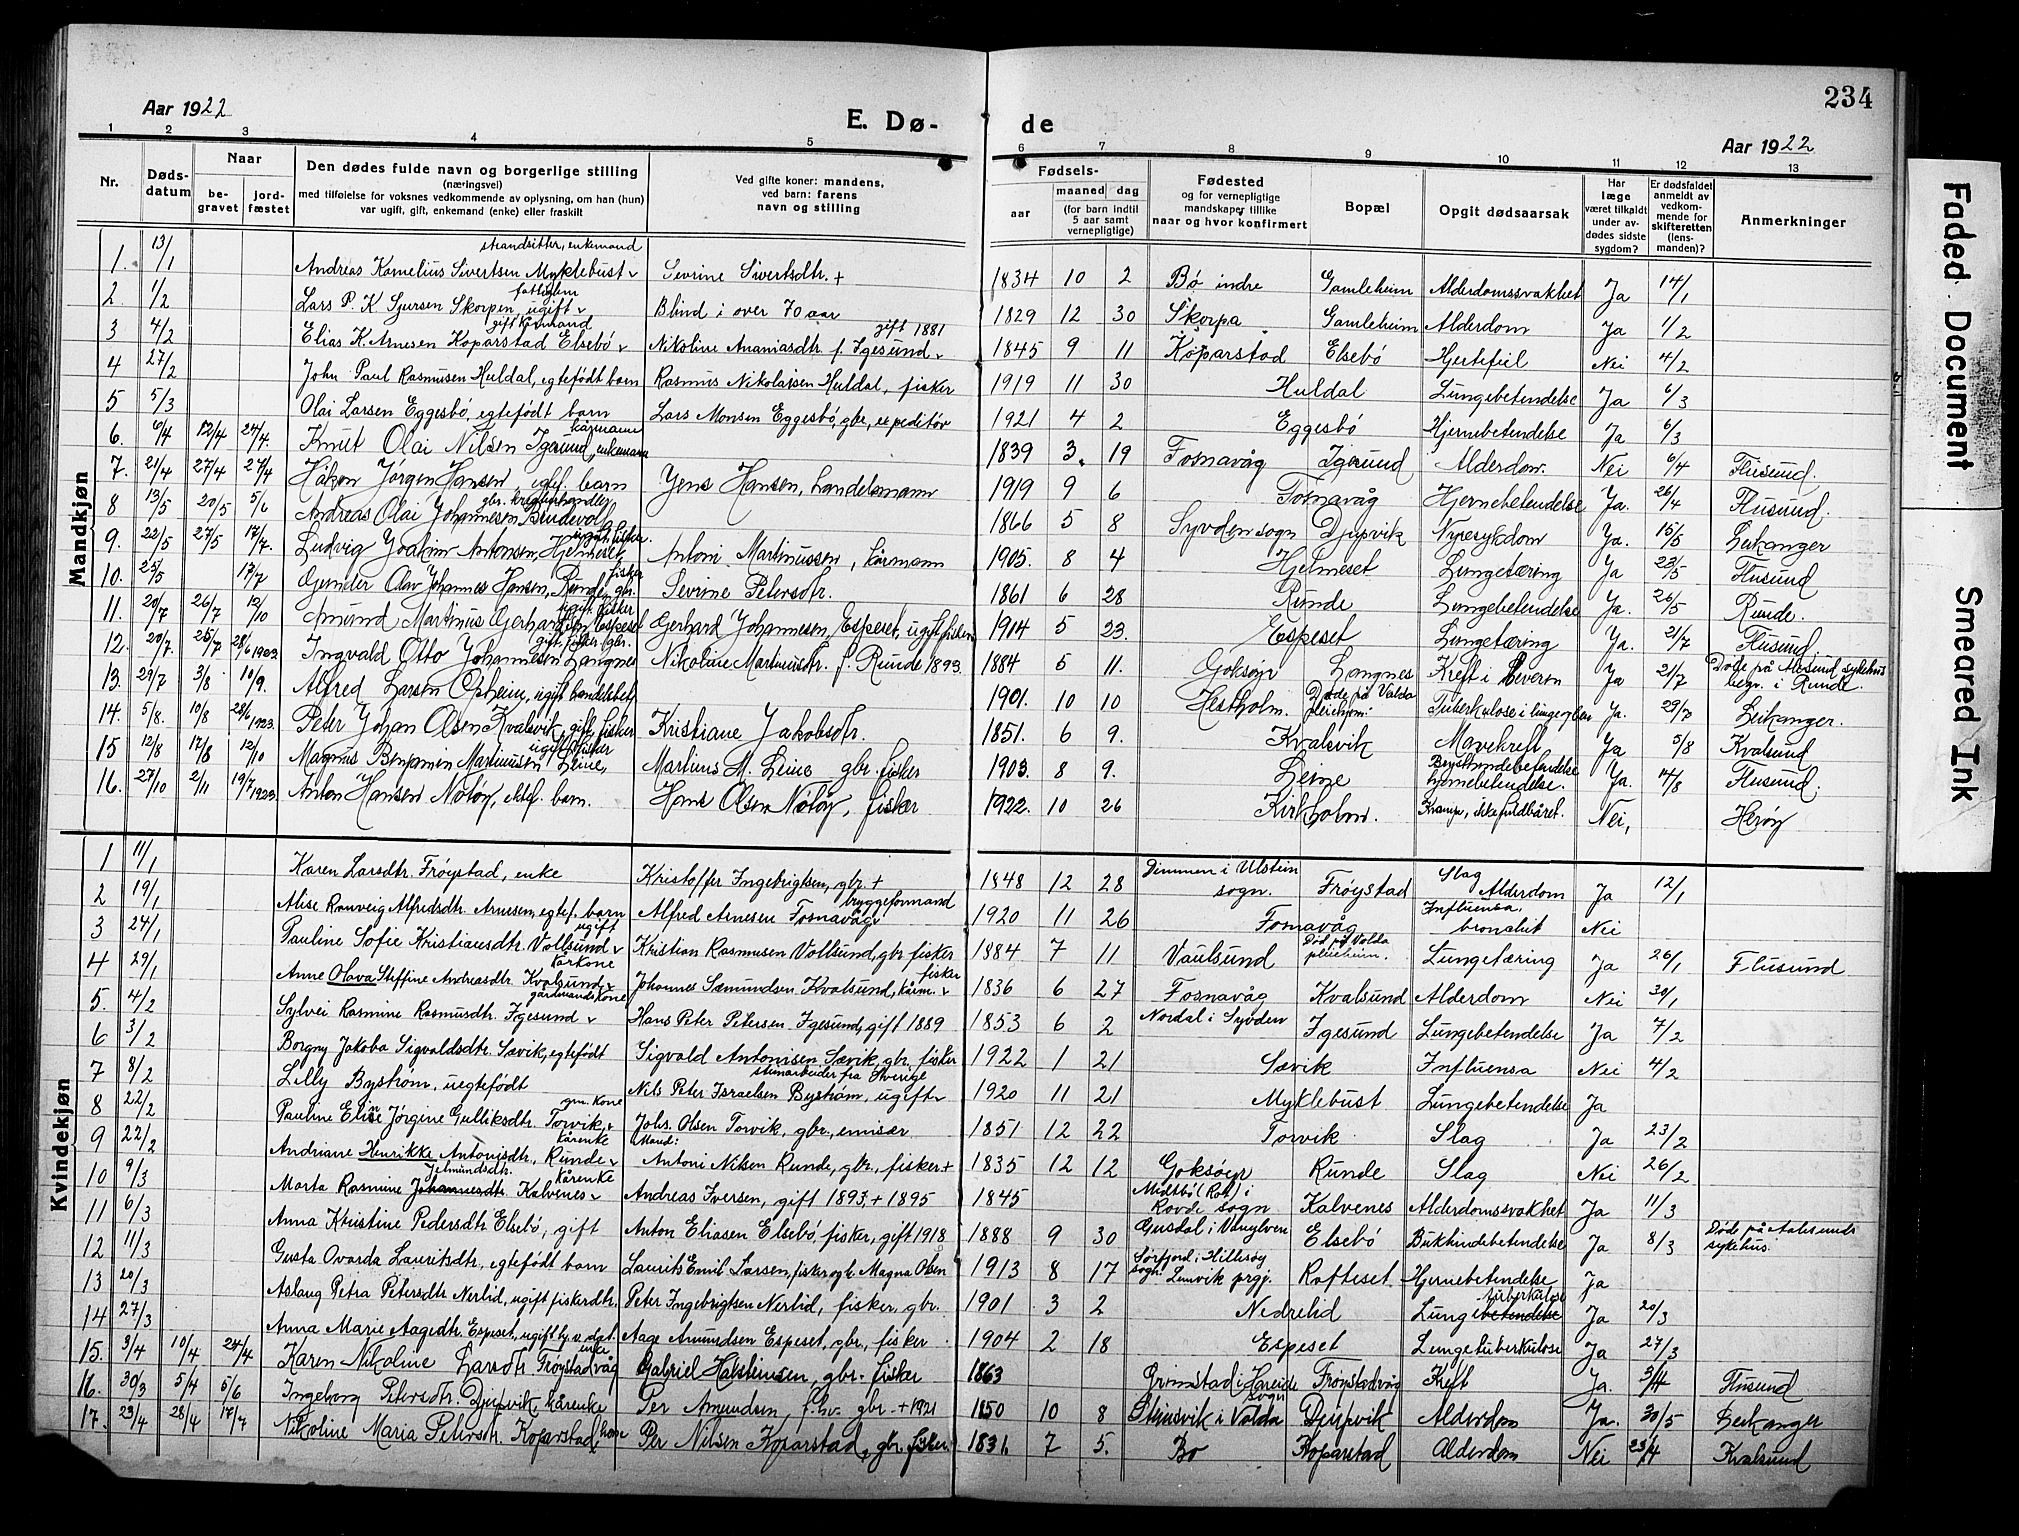 234
Aar 1922
E. Dø-
de
Aar 1922
1 2 3 4 5 6 7 8 9 10 11 12 13
Nr. Døds-datum Naar be-gravet jord-fæstet Den dødes fulde navn og borgerlige stilling (næringsvei) med tilføielse for voksnes vedkommende av oplysning, om han (hun) var ugift, gift, enkemand (enke) eller fraskilt Ved gifte koner: mandens, ved barn: farens navn og stilling Fødsels- aar maaned dag (for barn indtil 5 aar samt vernepligtige) Fødested og for vernepligtige mandskaper tillike naar og hvor konfirmert Bopæl Opgit dødsaarsak Har læge været tilkaldt under av-dødes sidste sygdom? Er dødsfaldet anmeldt av vedkom-mende for skifteretten (lens-manden)? Anmerkninger
Mandkjøn
1. 13/1 Andreas Kornelius Sivertsen Myklebust strandsitter, enkemand Sevrine Sivertsdtr. + 1834 10 2 Bø indre Gamleheim Alderdomssvakhet Ja 14/1
2 1/2 Lars P. K Sjursen Skorpen, ugift fattiglem Blind i over 70 aar 1829 12 30 Skorpa Gamleheim Alderdom Ja 1/2
3 4/2 Elias K. Arnesen Koparstad Elsebø gift kårmand Nikoline Ananiasdtr. f. Igesund gift 1881 1845 9 11 Koparstad Elsebø Hjertefeil Nei 4/2
4 27/2 John Paul Rasmusen Huldal, egtefødt barn Rasmus Nikolaisen Huldal, fisker 1919 11 30 Huldal Lungebetendelse Ja 6/3
5 5/3 Olai Larsen Eggesbø, egtefødt barn Lars Monsen Eggesbø, gbr, expeditør 1921 4 2 Eggesbø Hjernebetendelse Ja 6/3
6. 6/4 12/4 24/4. Knut Olai Nilsen Igesund, kårmann enkemann 1839 3. 19 Fosnavåg Igesund Alderdom. Nei 6/4 Flusund.
7. 21/4 27/4 27/4 Håkon Jørgen Hansen, egtef. barn Jens Hansen, handelsmann 1919 9 6 Fosnavåg Hjernebetendelse Ja. 26/4 Flusund.
8 13/5 20/5 5/6 Andreas Olai Johannesen Bendevoll gbr. kreaturhandler 1866 5 8 Syvden sogn Djupvik Nyresykdom Ja. 15/5 Leikanger
9. 22/5 27/5 17/7. Ludvig Joakim Antonsen, Helmeset, ugift fisker. Antoni Martinussen, kårmann 1905. 8 4 Helmeset Lungetæring Ja 23/5 Flusund
10. 25/5 17/7 Gunder Olav Johannes Hansen, Runde, gbr. fisker Sevrine Petersdtr. 1861 6 28 Runde Lungebetendelse Ja. 26/5 Runde.
11. 20/7 26/7 12/10 Amund Martinus Gerhardsen Espeset ugift fisker Gerhard Johannesen, Espeset, ugift fisker 1914 5 23. Espeset Lungetæring Ja. 21/7 Flusund.
12. 20/7. 25/7 28/6 1923. Ingvald Otto Johannesen Langnes gift, fisker, gbr. Nikoline Martinusdtr. f. Runde 1893. 1884 5 11. Goksøyr Langnes Kreft i leveren Ja 21/7 Døde på Ålesund sykehus begr. i Runde.
13. 29/7 3/8 10/9. Alfred Larsen Opheim, ugift handelsbetj. 1901. 10 10 Hestholm. Døde på Volda pleiehjem: Tuberkulose i lunge Ja. 29/7 Leikanger.
14. 5/8. 10/8 28/6 1923. Peter Johan Olsen Kvalsvik, gift, fisker Kristiane Jakobsdtr. 1851. 6 9. Kvalsvik Mavekreft Ja 5/8 Kvalsund
15 12/8 17/8 12/10 Magnus Benjamin Martinusen Leine, ugift fisker Martinus M. Leine gbr. fisker 1903. 8 9. Leine Brysthindebetendelse hjernebetendelse. Ja. 14/8 Flusund.
16. 27/10 2/11 19/7 1923 Anton Hansen Notøy, ektef. barn. Hans Olsen Notøy, fisker 1922. 10 26 Kirkholm. Krampe, ikke fuldbåret. Nei, Herøy
Kvindekjøn
1 11/1 Karen Larsdtr. Frøystad, enke Kristoffer Ingebrigtsen, gbr + 1848 12 28 Dimmen i Ulstein sogn. Frøystad Slag Alderdom Ja 12/1
2 19/1 Alise Ranveig Alfredsdtr. Arnesen, egtef. barn Alfred Arnesen Fosnavåg bryggeformand 1920 11 26 Fosnavåg Influensa, bronchit Nei
3 24/1 Pauline Sofie Kristiansdtr. Vollsund ugift Kristian Rasmusen Vollsund, gbr. fisker 1884 7 11 Vaulsund Død på Volda pleieheim. Lungetæring Ja 26/1 Flusund
4 29/1 Anne Olava Steffine Andreasdtr. Kvalsund kårkone Johannes Sæmundsen Kvalsund, kårm. fisker 1836 6 27 Fosnavåg Kvalsund Alderdom Nei 30/1
5. 4/2 Sylvei Rasmine Rasmusdtr. Igesund gårdmandskone Hans Peter Petersen Igesund, gift 1889 1853 6 2 Nordal i Syvden Igesund Lungebetendelse Ja 7/2
6 3/2 Borgny Jakoba Sigvaldsdtr. Sævik, egtefødt Sigvald Antonisen Sævik, gbr, fisker 1922 1 21 Sævik Influensa Nei 4/2
7 8/2 Lilly Bystrøm, uegtefødt Nils Peter Israelsen Bystrøm, ugift stenarbeider fra Sverige 1920 11 21 Myklebust Lungebetendelse Ja
8 22/2 Pauline Eline Jørgine Gulliksdtr. Torvik, gm. kone Johs. Olsen Torvik, gbr, emisær 1851 12 22 Torvik Slag Ja 23/2
9 22/2 Andriane Henrikke Antonisdtr. Runde kårenke Mand: Antoni Nilsen Runde, gbr, fisker + 1835 12 12 Goksøyr Runde Slag Nei 26/2
10 9/3 Marta Rasmine Johannesdtr. Jetmundsdtr. Kalvenes kårenke Andreas Iversen, gift 1893, + 1895 1845 Midtbø (Rot) i Rovde sogn Kalvenes Alderdomssvakhet Ja 11/3
11 6/3 Anna Kristine Pedersdtr Elsebø, gift Anton Eliasen Elsebø, fisker, gift 1918 1888 9 30 Gusdal i Vanylven Elsebø Bukhindebetendelse Ja 8/3 Døde på Aalesunds sykehus.
12 11/3 Gusta Ovarda Lauritsdtr, egtefødt barn Laurits Emil Larsen, fisker og Magna Olsen 1913 8 17 Sørfjord i Hillesøy sogn. Lenvik prgj. Rafteset Hjernebetendelse Ja
13 20/3 Aslaug Petra Petersdtr Nerlid, ugift fiskerdtr. Peter Ingebrigtsen Nerlid, fisker, gbr. 1901 3 2 Nedrelid Lungebetendelse tuberkulose Ja 20/3
14 27/3 Anna Marie Aagedtr. Espeset, ugift Aage Amundsen Espeset, gbr, fisker 1904 2 18 Espeset Lungetuberkulose Ja 27/3
15. 3/4 10/4 24/4 Karen Nikoline Larsdtr Frøystadvåg enke Gabriel Halsteinsen, gbr. fisker 1863 Grimstad i Hareide sogn Frøystadvåg Kreft Ja. 3/4 Flusund
16. 30/3 5/4 5/6 Ingeborg Petersdtr. Djupvik, kårenke Per Amundsen, f. hv. gbr + 1921 1850 10 8 Steinsvik i Volda Djupvik Alderdom Ja. 30/5 Leikanger
17. 23/4 28/4 17/7 Nikoline Maria Petersdtr. Koparstad, kone Per Nilsen Koparstad, gbr. fisker 1831. 7 5. Bø Koparstad Alderdom Nei 23/4 Kvalsund
Faded Document
Smeared Ink